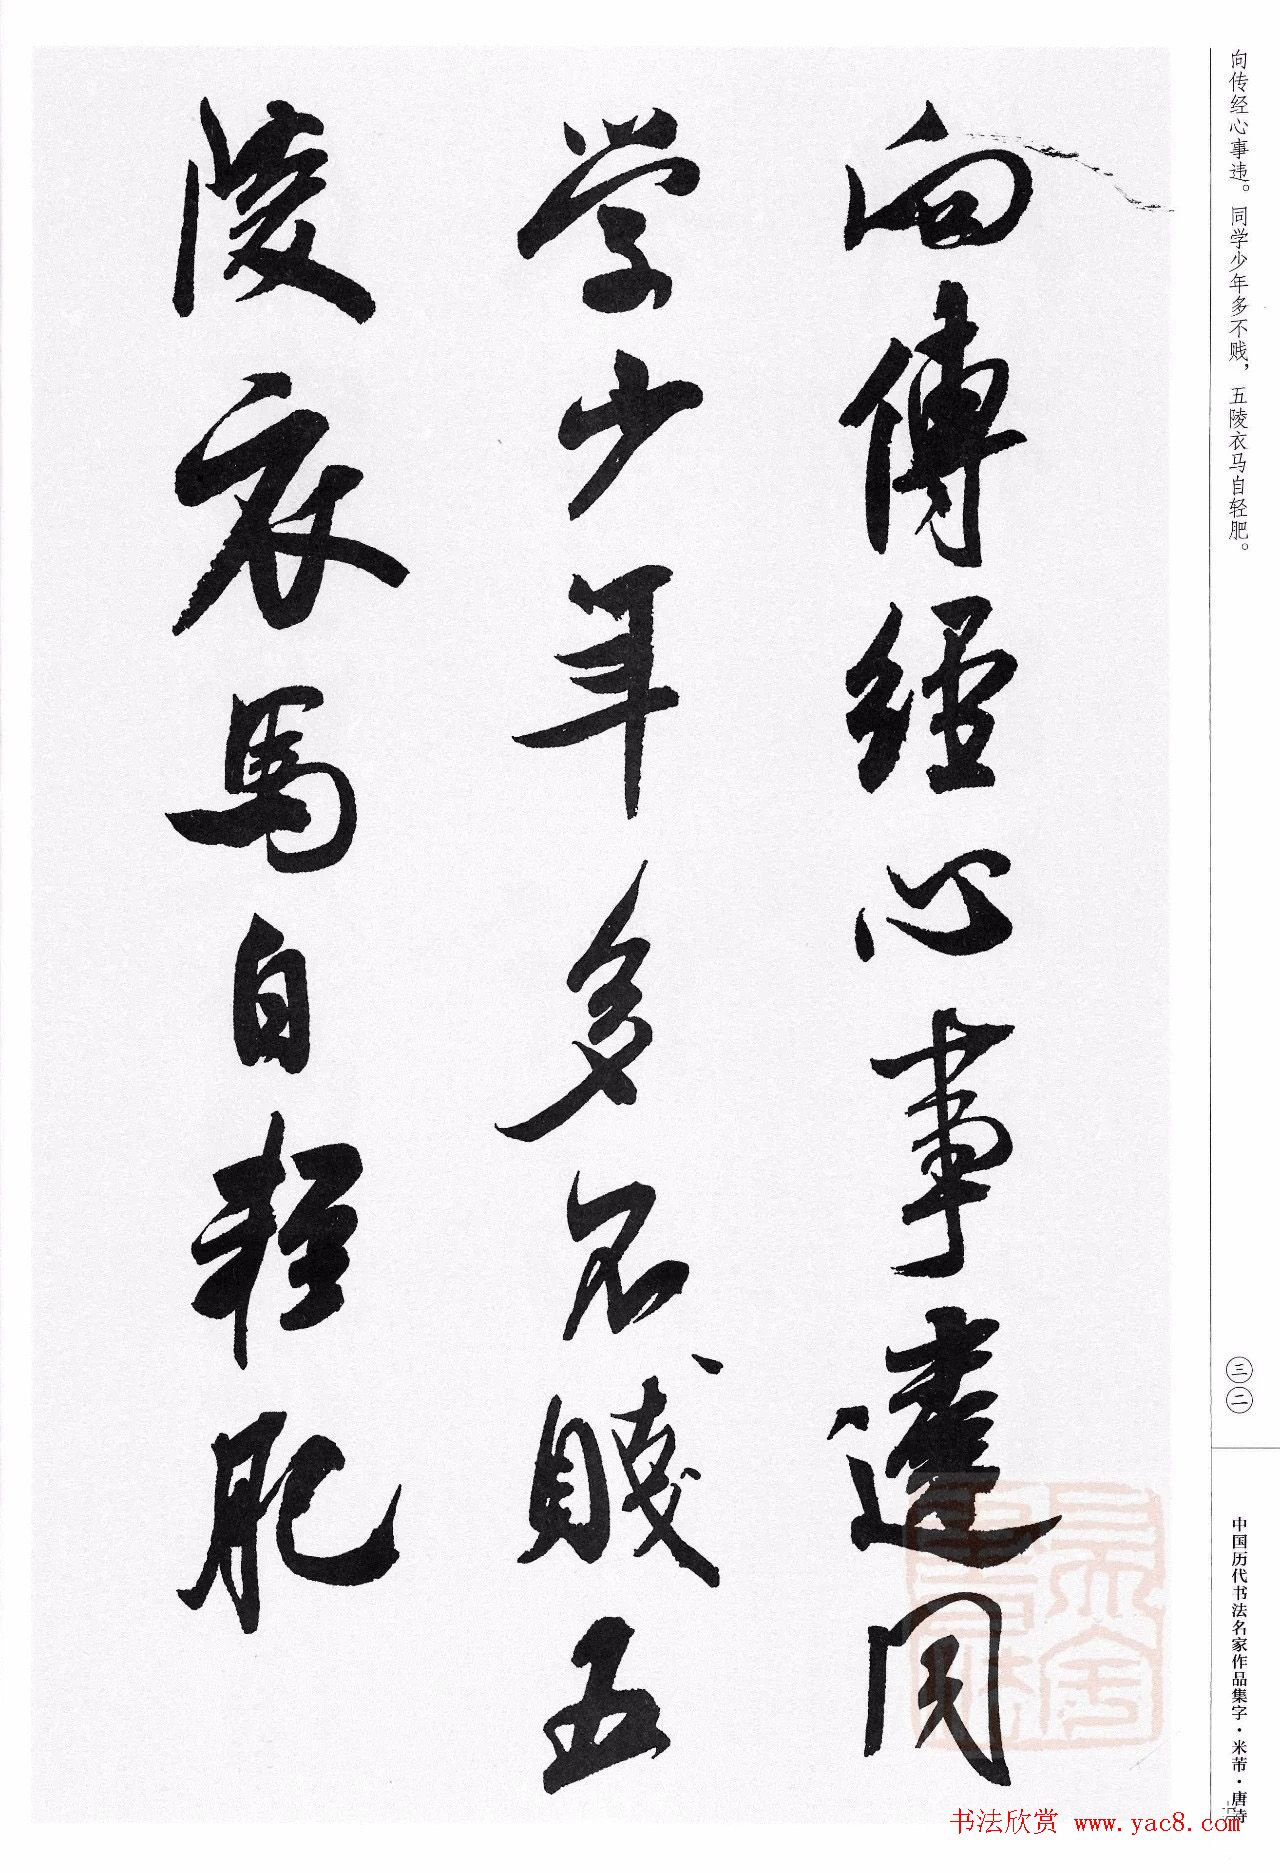 向传经心事违。同学少年多不贱，五陵衣马自轻肥。
向傳經心事違同
学少年多不賤五
陵衣馬自輕肥
三二
中国历代书法名家作品集字·米芾·唐诗
书法欣赏 www.yac8.com